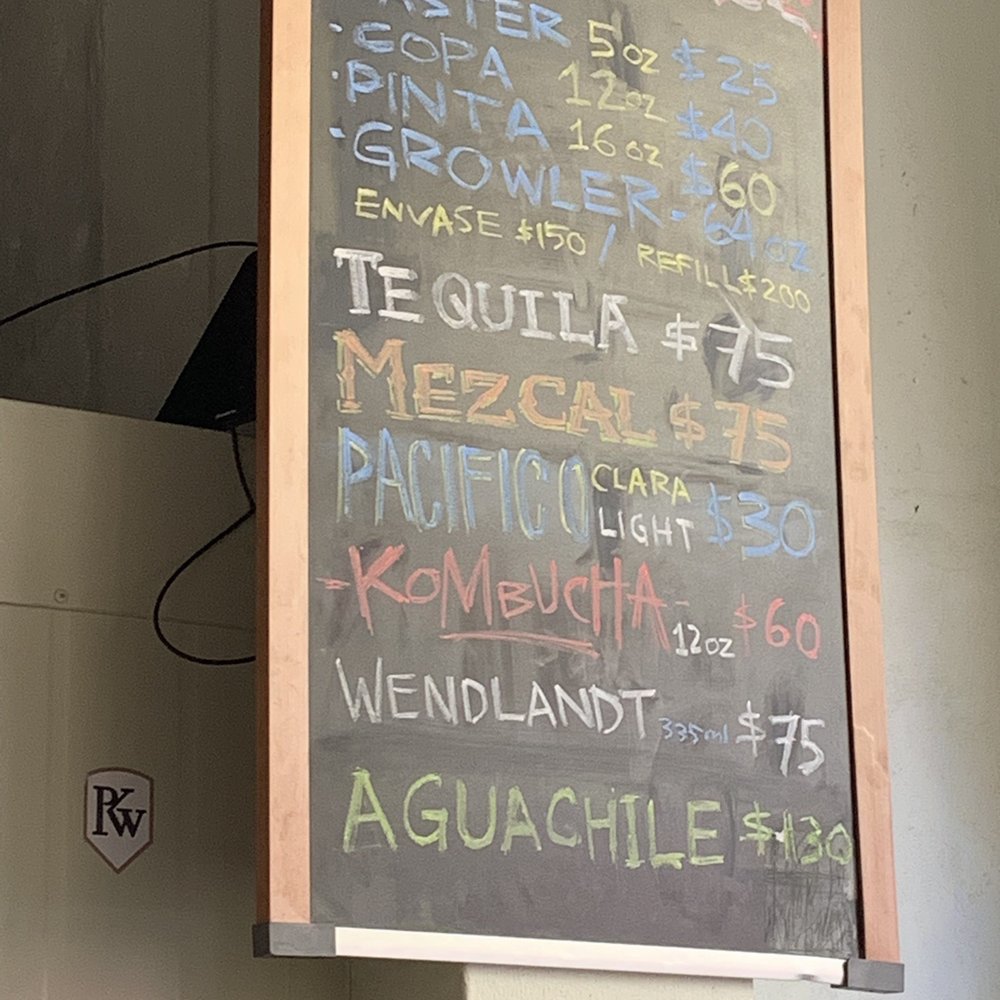 ASTER 5oz $25
·COPA 12oz $40
·PINTA 16oz $60
·GROWLER - 64oz
ENVASE $150 / REFILL $200
TEQUILA $75
MEZCAL $75
PACIFICO CLARA LIGHT $30
-KOMBUCHA- 12oz $60
WENDLANDT 335ml $75
AGUACHILE $130
PKW